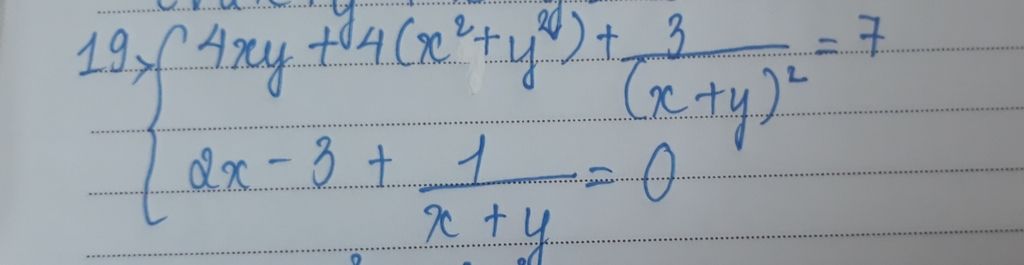 19, { 4xy + 4(x² + y²) + 3/(x + y)² = 7
2x - 3 + 1/(x + y) = 0